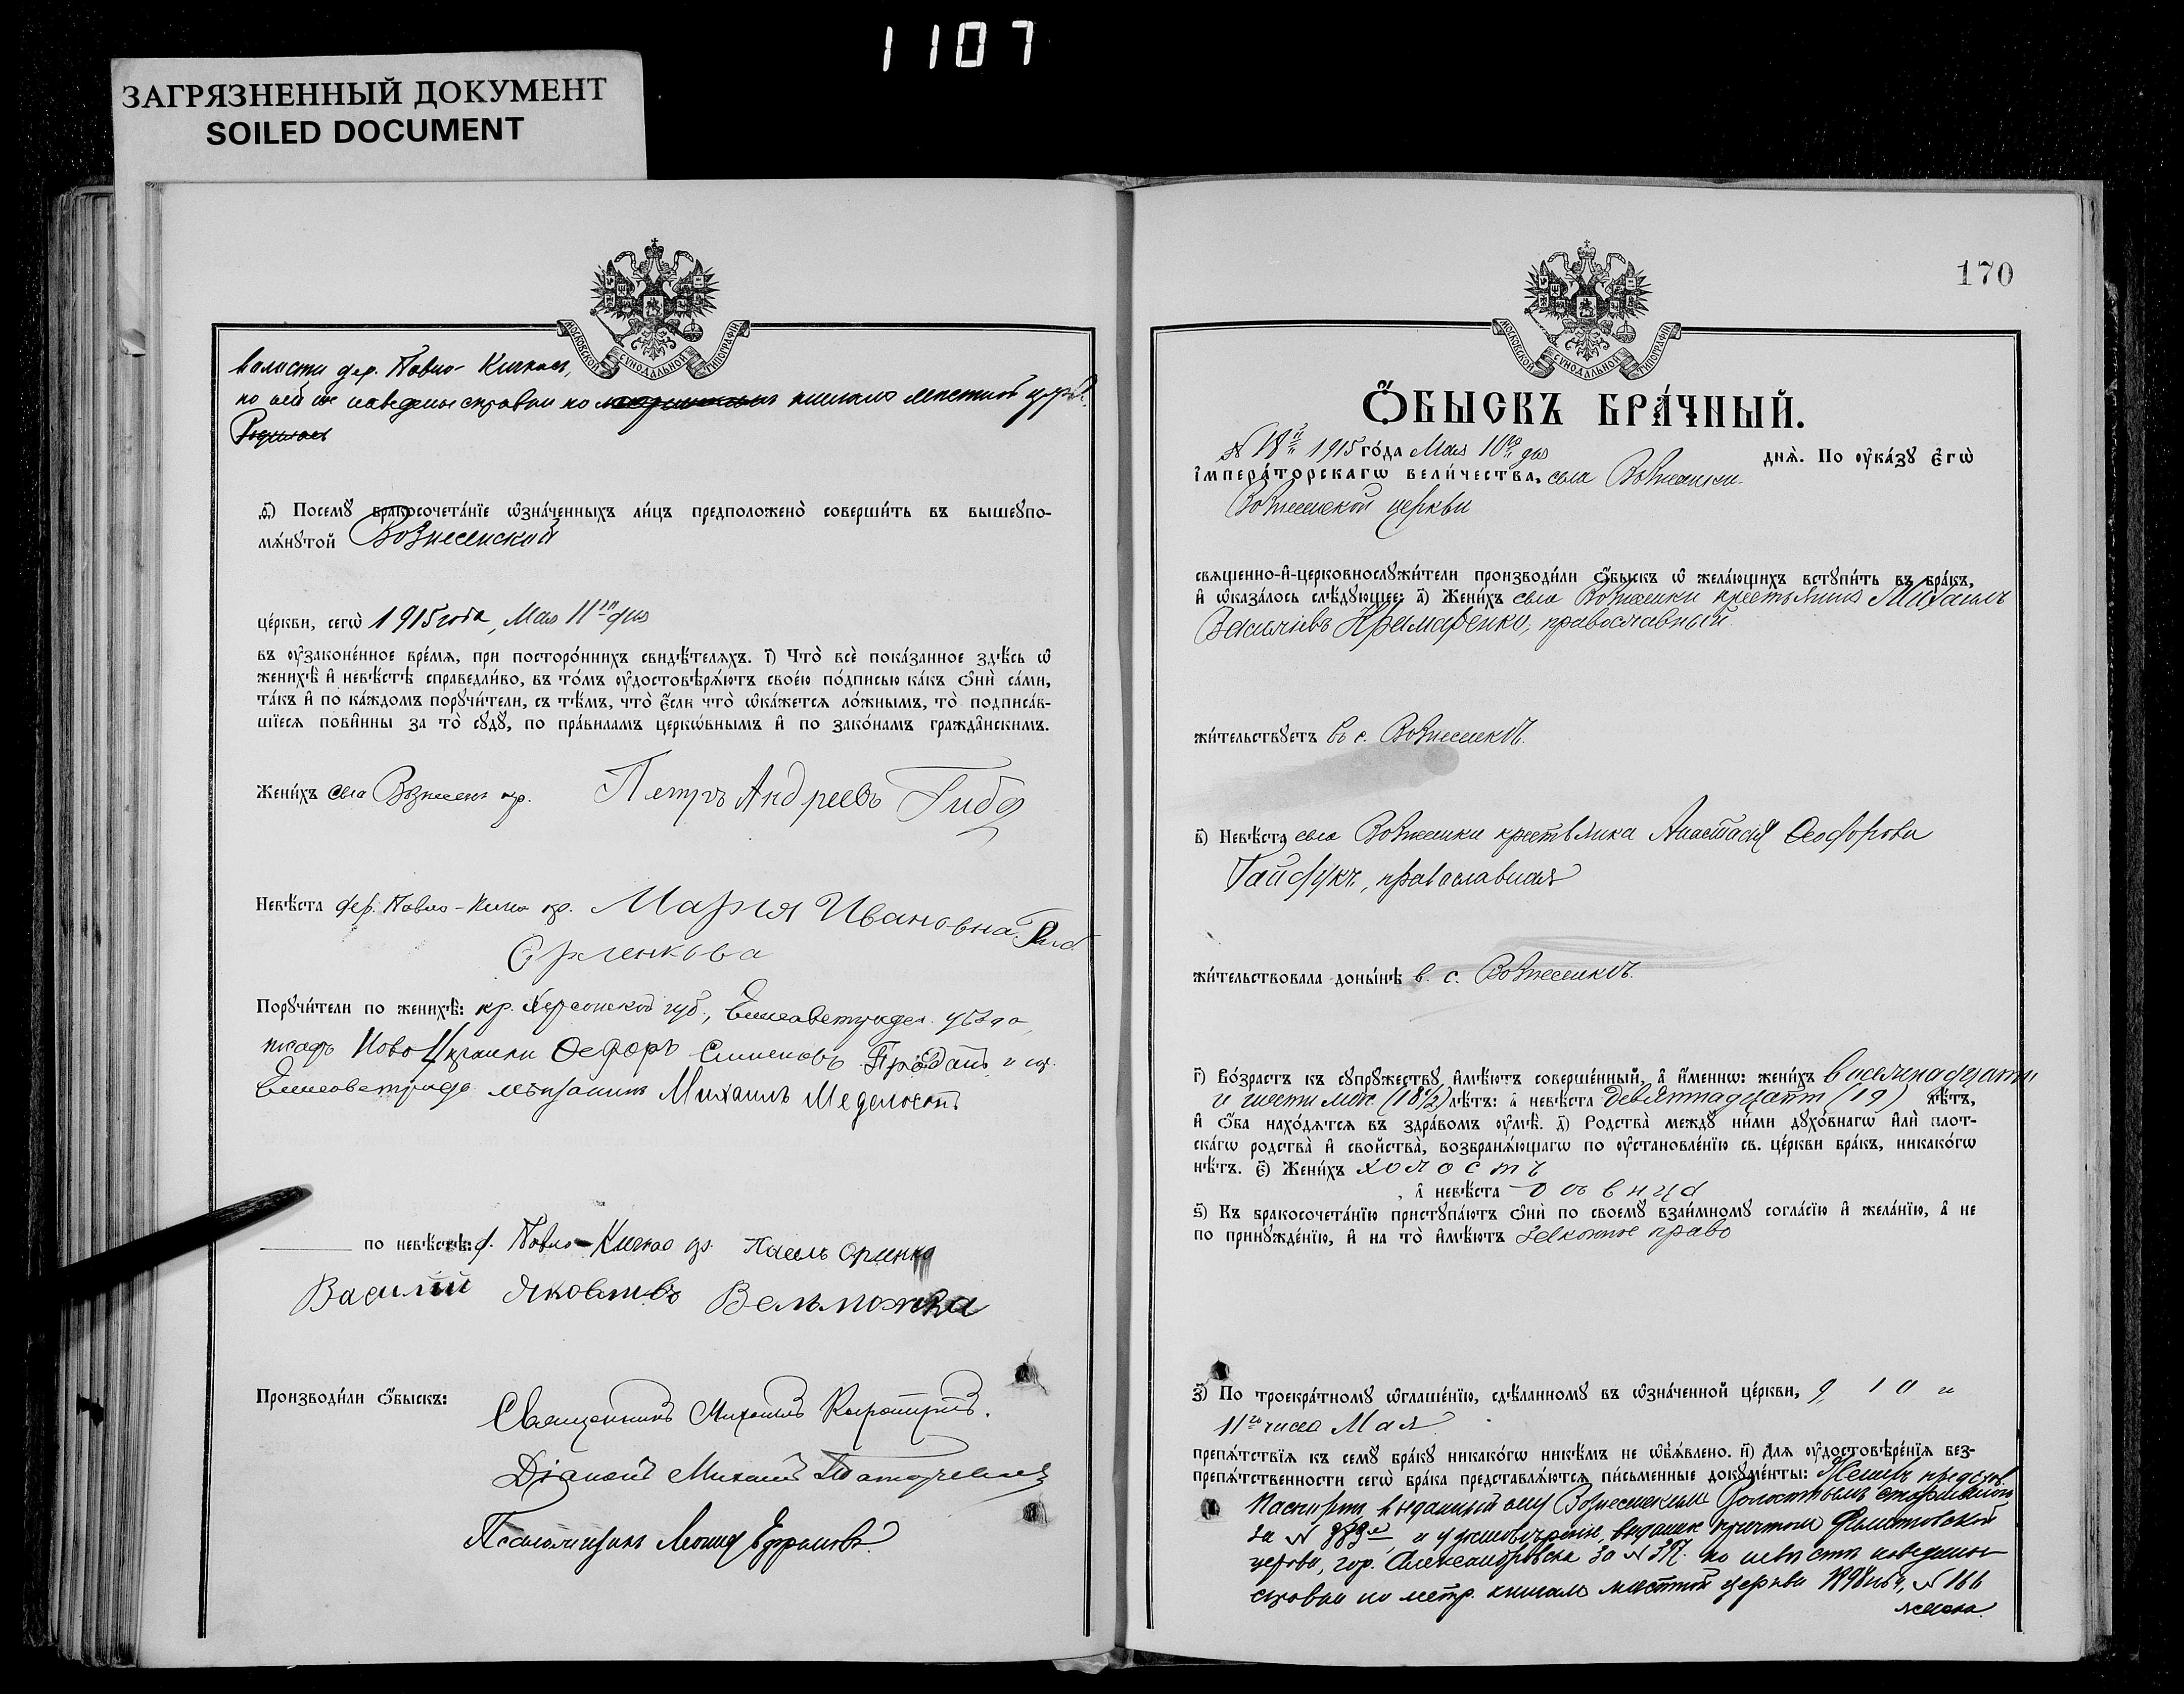 1107
ЗАГРЯЗНЕННЫЙ ДОКУМЕНТ
SOILED DOCUMENT
МОСКОВСКОЙ СѴНОДАЛЬНОЙ ТИПОГРАФІИ
волости дер. Павло-Кичкас,
по ней не наведены справки по книгам местной церкви.
Родилась
ѳ҃) Посемꙋ̀ бракосочета́нїе ѡ҆зна́ченныхъ ли́цъ предположено̀ соверши́ть въ вышеꙋпо-
мѧ́нꙋтой Вознесенской
це́ркви, сегѡ̀ 1915 года, Мая 11го дня
въ ᲂу҆законе́нное вре́мѧ, при посторо́ннихъ свидѣ́телѧхъ. і҃) Что̀ всѐ пока́занное здѣ́сь ѡ҆
женихѣ̀ и҆ невѣ́стѣ справедли́во, въ то́мъ ᲂу҆достовѣрѧ́ютъ свое́ю по́дписью ка́къ ѻ҆нѝ са́ми,
та́къ и҆ по ка́ждомъ порꙋчи́тели, съ тѣ́мъ, что̀ є҆́сли что̀ ѡ҆ка́жетсѧ ло́жнымъ, то̀ подписа́в-
шїесѧ пови́нны за то̀ сꙋдꙋ̀, по пра́виламъ церкѡ́внымъ и҆ по зако́намъ гражда̑нскимъ.
Жени́хъ села Вознесен. кр. Петръ Андреевъ Гиба
Невѣ́ста дер. Павло-Кичк. кр. Мария Ивановна
Орленкова
Порꙋчи́тели по женихѣ̀: кр. Херсонской губ., Елисаветградск. уезда,
Ново Украинки Ѳедоръ Семеновъ и гор.
Елисаветграда мещанинъ Михаилъ
по невѣ́стѣ: д. Павло-Кичкас кр.
Василий Яковлевъ Вельможка
Производи́ли ѻ҆́быскъ: Священникъ Михаилъ
Діаконъ Михаилъ
Псаломщикъ Леонид Ефремовъ
170
МОСКОВСКОЙ СѴНОДАЛЬНОЙ ТИПОГРАФІИ
Ѻ҆́БЫСКЪ БРА́ЧНЫЙ.
№ 18й 1915 го́да Мая 10го дня днѧ̀. По ᲂу҆ка́зꙋ є҆гѡ̀
і҆мпера́торскагѡ вели́чества, села Вознесенки
Вознесенской церкви
свѧще́нно-и҆-церковнослꙋжи́тели производи́ли ѻ҆́быскъ ѡ҆ жела́ющихъ встꙋпи́ть въ бра́къ,
и҆ ѡ҆каза́лось слѣ́дꙋющее: а҃) Жени́хъ села Вознесенки крестьянин Михаилъ
Васильевъ Крамаренко, православный
жи́тельствꙋетъ в с. Вознесенкѣ.
в҃) Невѣ́ста села Вознесенки крестьянка Анастасия Ѳеодорова
Гайдукъ, православная
жи́тельствовала доны́нѣ в. с. Вознесенкѣ.
г҃) Во́зрастъ къ сꙋпрꙋ́жествꙋ и҆мѣ́ютъ соверше́нный, а҆ и҆́меннѡ: жени́хъ восемнадцати
и шести мес. (18 1/2) лѣ́тъ: а҆ невѣ́ста девятнадцати (19) лѣ́тъ,
и҆ ѻ҆́ба нахо́дѧтсѧ въ здра́вомъ ᲂу҆мѣ̀. д҃) Родства̀ междꙋ̀ ни́ми дꙋхо́внагѡ и҆лѝ плот-
ска́гѡ родства̀ и҆ сво́йства, возбранѧ́ющагѡ по ᲂу҆становле́нїю св. це́ркви бра́къ, никако́гѡ
нѣ́тъ. є҃) Жени́хъ холостъ
, а҆ невѣ́ста девица
ѕ҃) Къ бракосочета́нїю пристꙋпа́ютъ ѻ҆нѝ по своемꙋ̀ взаи́мномꙋ согла́сїю и҆ жела́нїю, а҆ не
по принꙋжде́нїю, и҆ на то̀ и҆мѣ́ютъ законное право
з҃) По троекра́тномꙋ ѡ҆глаше́нїю, сдѣ́ланномꙋ въ ѡ҆зна́ченной це́ркви, 9, 10 и
11го числа Мая
препѧ́тствїѧ къ семꙋ̀ бра́кꙋ никако́гѡ никѣ́мъ не ѡ҆б̾ѧ́влено. и҃) Длѧ ᲂу҆достовѣре́нїѧ без-
препѧ́тственности сегѡ̀ бра́ка представлѧ́ютсѧ пи́сьменные докꙋме́нты: Жених предст.
Паспортъ выданный ему Вознесенским Волостным старшиной
за № 883м и удостоверение, выданное причтом церкви
церкви, гор. Александровска за № 317. по невесте наведены
справки по метр. книгам местной церкви 1896 год, № 166
женск.